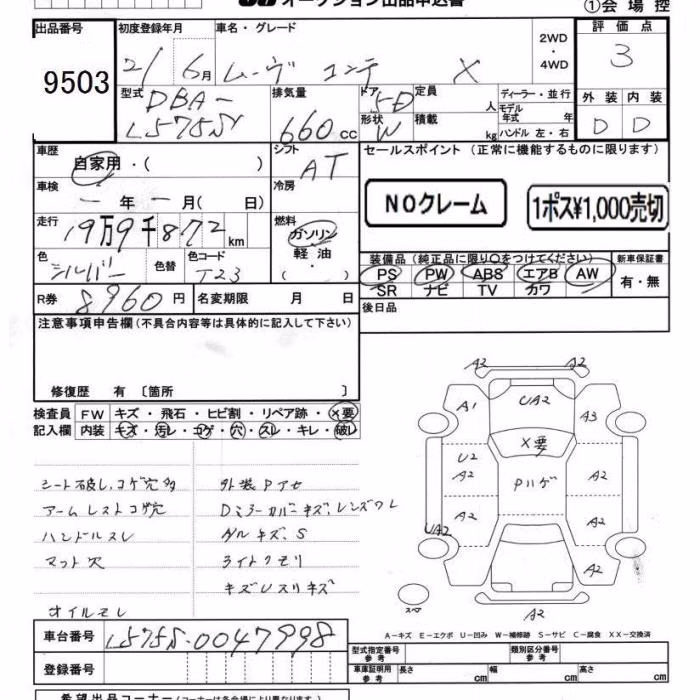 オークション出品申込書 ①会場控
出品番号 初度登録年月 車名・グレード 2WD・4WD 評価点
9503 21/6月 ムーヴ コンテ X 3
型式 DBA-L575S 排気量 660cc ドア 5D 定員 人 ディーラー・並行
形状 W 積載 kg モデル年式 年 ハンドル 左・右
外装 内装
D D
車歴 自家用・( ) シフト AT セールスポイント(正常に機能するものに限ります)
車検 ー年ー月( 日) 冷房
NOクレーム 1ポス¥1,000売切
走行 19万9千872km 燃料 ガソリン 軽油・( )
色 シルバー 色替 色コード T23
装備品(純正品に限り○をつけてください) 新車保証書
PS PW ABS エアB AW 有・無
SR ナビ TV カワ
R券 8960円 名変期限 月 日 後日品
注意事項申告欄(不具合内容等は具体的に記入して下さい)
修復歴 有〔箇所 〕
検査員 FW キズ・飛石・ヒビ割・リペア跡・X要
記入欄 内装 キズ・汚レ・コゲ・穴・スレ・キレ・破レ
A2 A2
A1 UA2 A3
X要
U2
Pハゲ
A2 A2
A2 A2
UA2
A2
A2
スペア
シート破レ、コゲ穴多 外装Pアセ
アームレストコゲ穴 Dミラーカバーキズ、レンズワレ
ハンドルスレ AルキズS
マット穴 ライトクモリ
キズUスリキズ
オイルモレ
A-キズ E-エクボ U-凹み W-補修跡 S-サビ C-腐食 XX-交換済
車台番号 L575S-0047998 型式指定番号 参考 類別区分番号 参考
登録番号 車庫証明用 参考 長さ cm 幅 cm 高さ cm
希望出品コーナー(コーナーは各会場により異なります。)